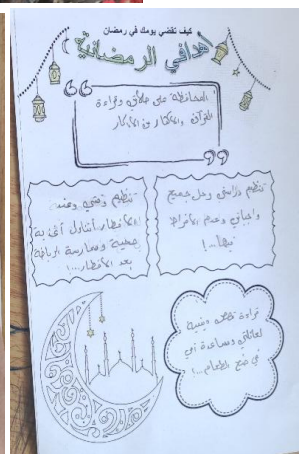 كيف تقضي يومك في رمضان
أهدافي الرمضانية
المحافظة على صلاتي وقراءة
القرآن والاكثار من الأذكار
تنظيم دراستي وحل جميع
واجباتي وعدم الأفراط
فيها...!
تنظيم وقتي وعند
الأفطار أتناول أغذية
صحية وممارسة الرياضة
بعد الأفطار...!
قراءة قصص دينية
لعائلتي ومساعدة أمي
في صنع الطعام...!